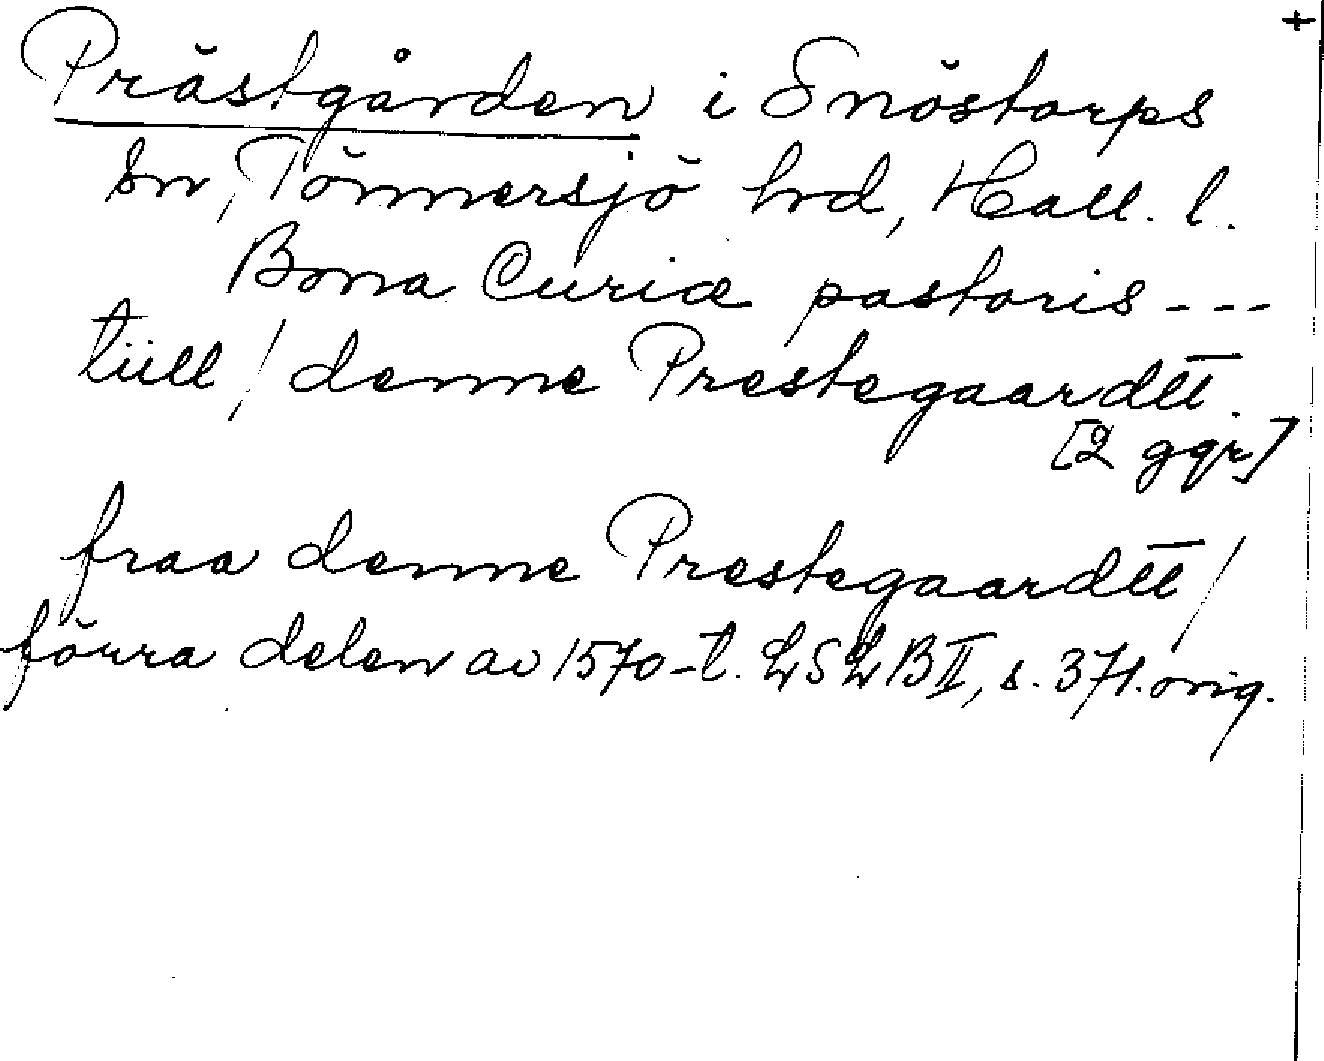 +
Prästgården i Snöstorps
sn, Tönnersjö hrd, Hall. l.
Bona Curiæ pastoris ---
tiill / denne Prestegaardtt.
[2 ggr]
fraa denne Prestegaardtt /
förra delen av 1570-t. LSLB II, s. 371. orig.